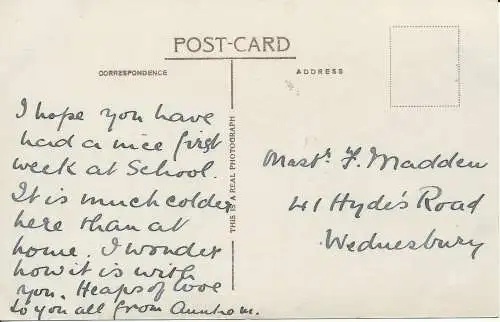 POST-CARD
CORRESPONDENCE
ADDRESS
I hope you have
had a nice first
week at School.
It is much colder
here than at
home. I wonder
how it is with
you. Heaps of love
to you all from
THIS IS A REAL PHOTOGRAPH
Mastr. F. Madden
41 Hydes Road
Wednesbury